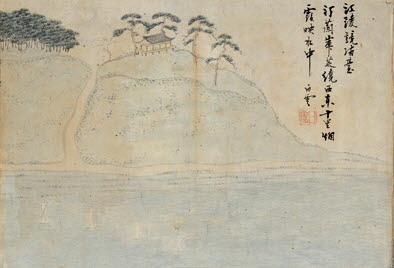 江陵鏡浦臺
汀蘭岸芷繞西東十里烟
霞映水中
白雲